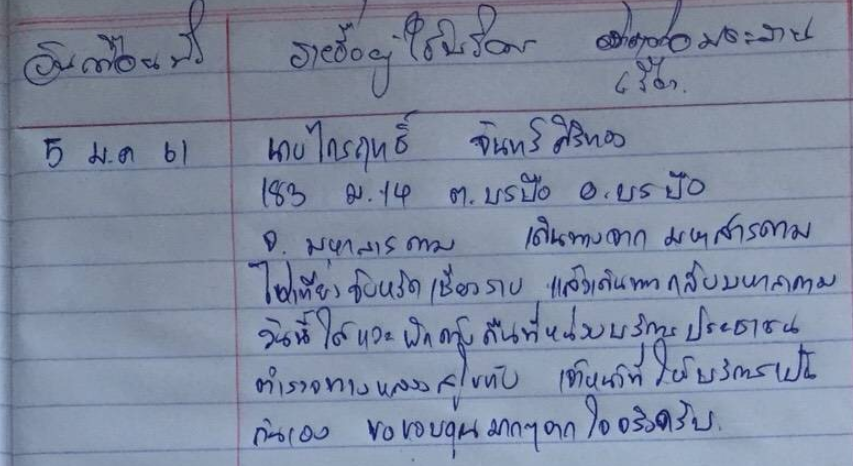 วันเดือนปี รายชื่อผู้ใช้บริการ
5 ม.ค 61 นายไกรฤทธิ์ จันทร์ศิริทอง
183 ม.14 ต.บรบือ อ.บรบือ
จ. มหาสารคาม เดินทางจาก มหาสารคาม
ไปเที่ยวจังหวัดเชียงราย แล้วเดินทางกลับมหาสารคาม
วันนี้ได้แวะพักหลับคืนที่หน่วยบริการประชาชน
ตำรวจทางหลวงสุโขทัย เจ้าหน้าที่ให้บริการเป็น
กันเอง ขอขอบคุณมากๆจากใจจริงครับ.